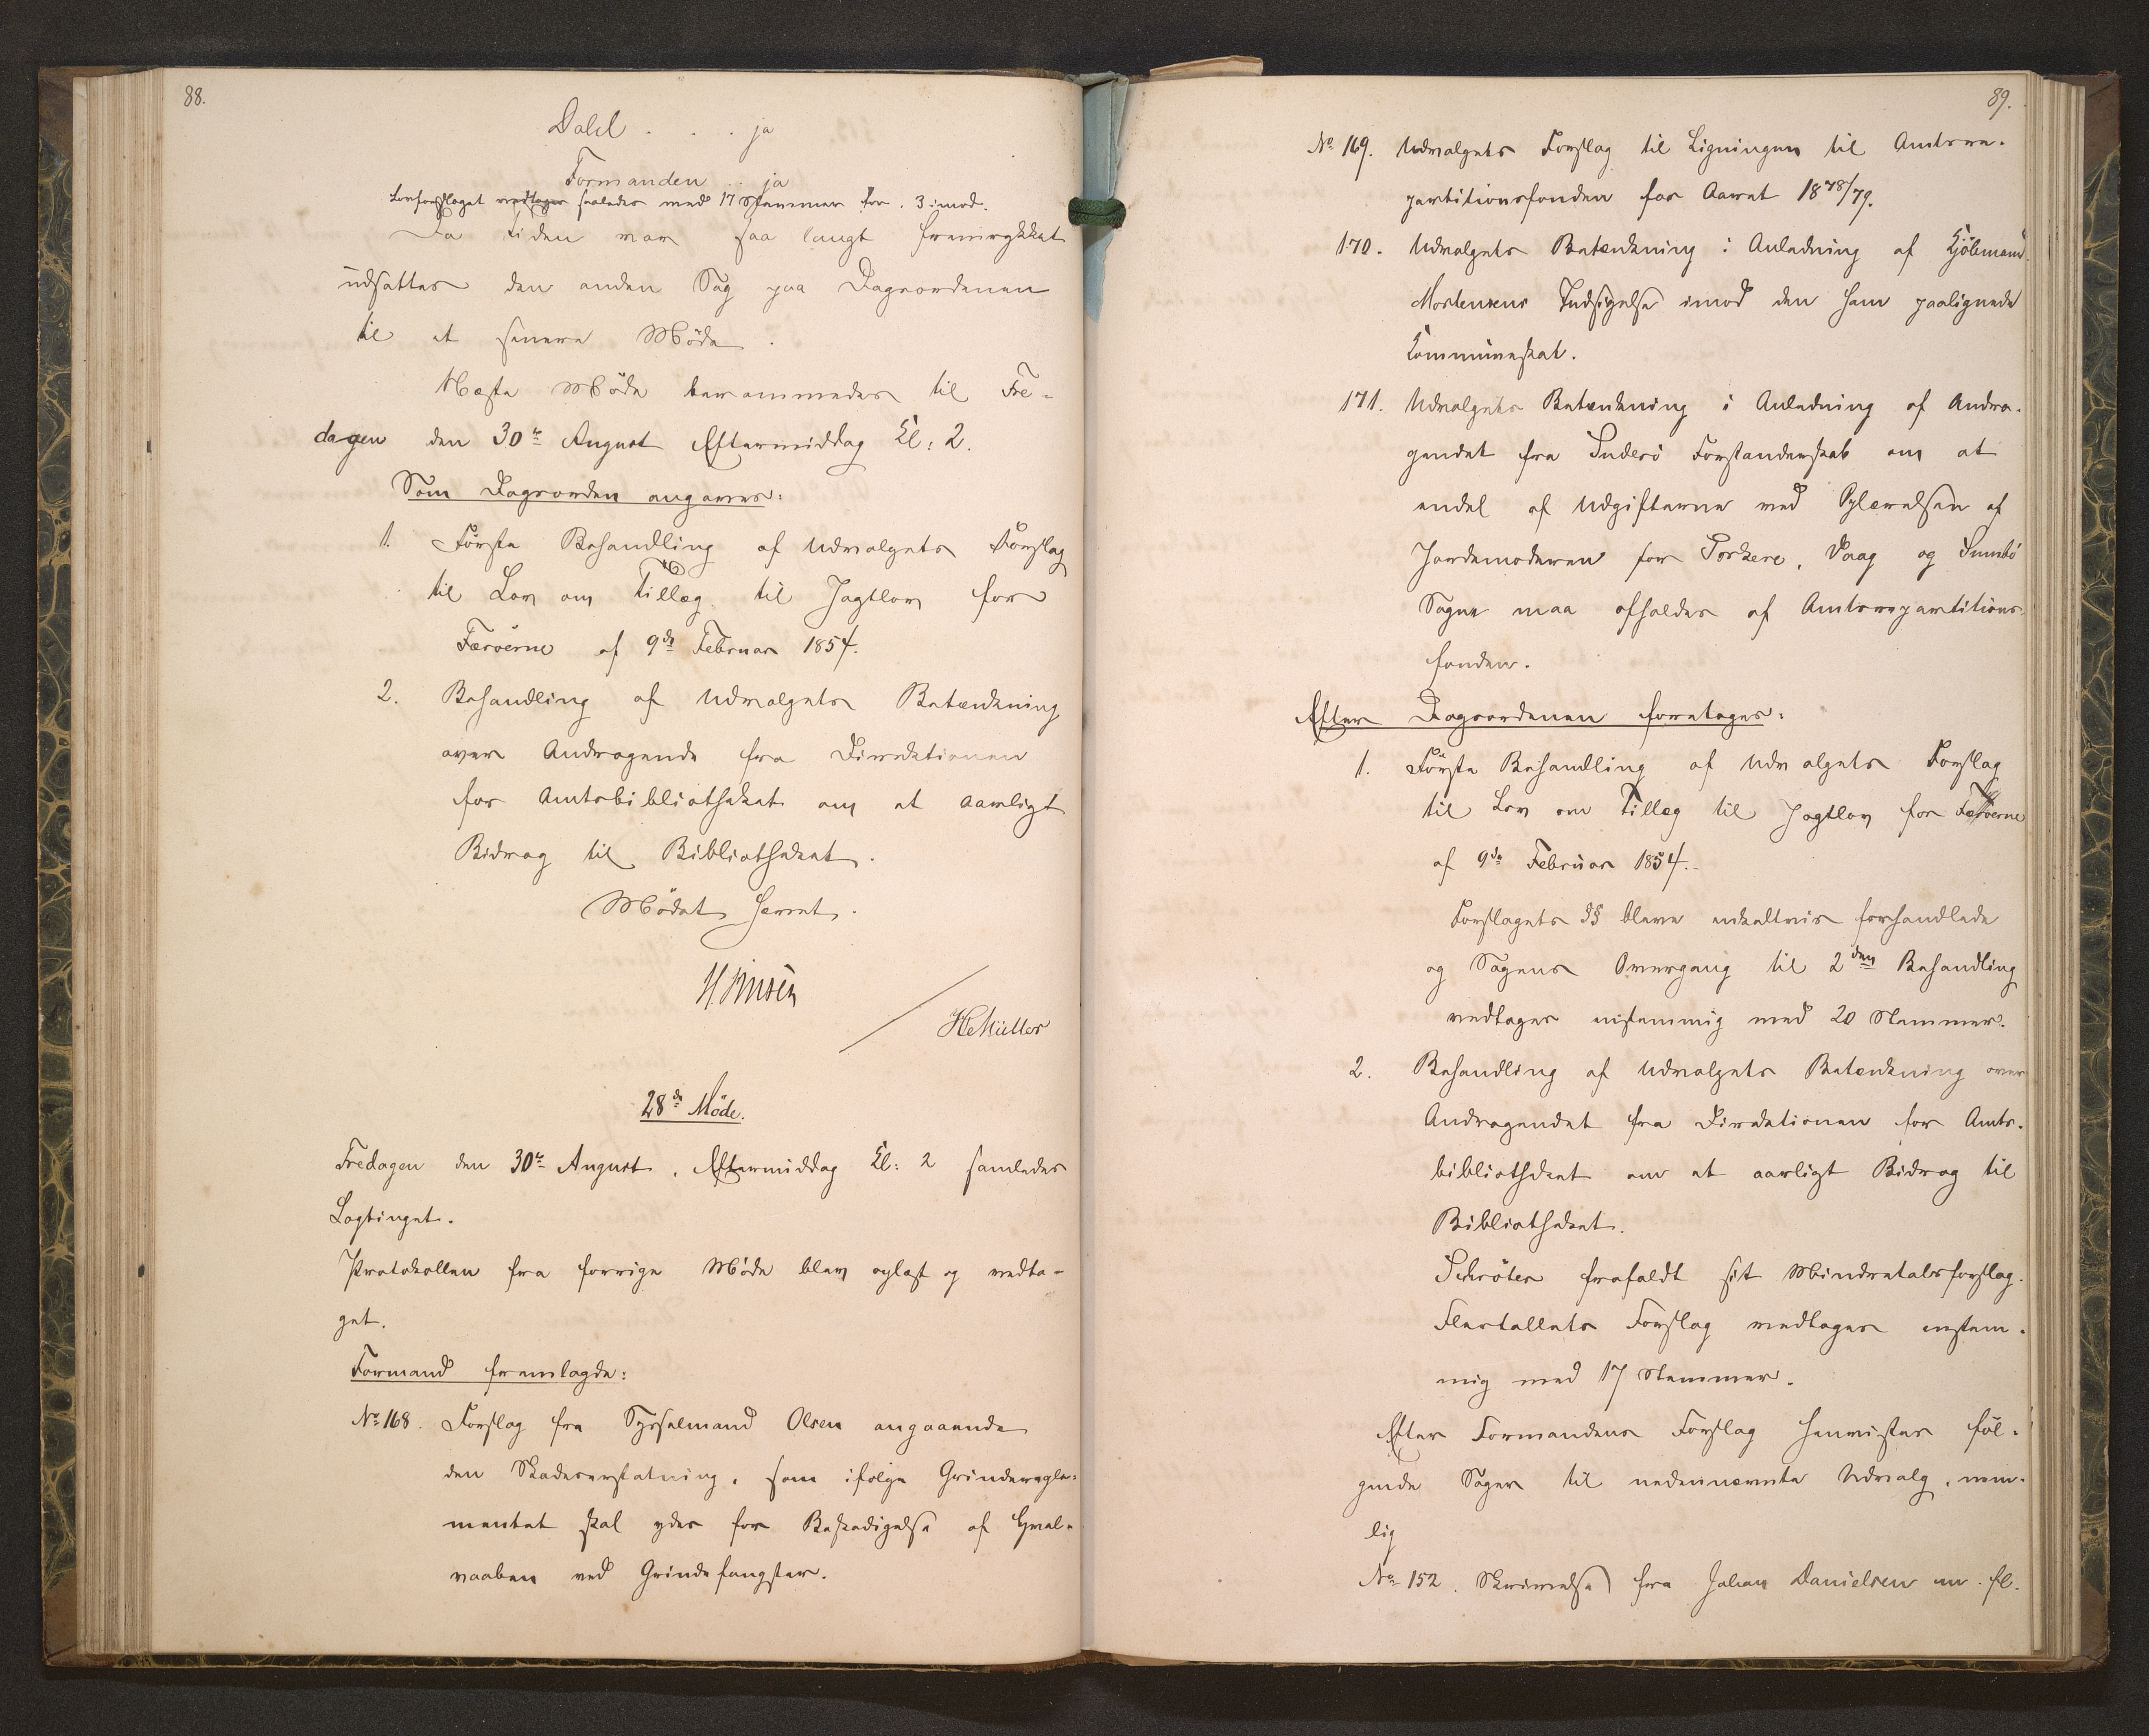 88.
Dahl . . . ja
Formanden . . ja
Lovforslaget vedtages saaledes med 17 Stemmer for. 3 imod.
Da Tiden var saa langt fremrykket
udsattes den anden Sag paa Dagsordenen
til et senere Møde.
Næste Møde berammedes til Fre-
dagen den 30te August Eftermiddag Kl: 2.
Som Dagsorden angaves:
1. Første Behandling af Udvalgets Forslag
til Lov om Tillæg til Jagtlov for
Færöerne af 9de Februar 1854.
2. Behandling af Udvalgets Betænkning
over Andragende fra Direktionen
for Amtsbibliotheket om et aarligt
Bidrag til Bibliotheket.
Mødet hævet.
HeMüller
28de Møde.
Fredagen den 30te August, Eftermiddag Kl: 2 samledes
Lagtinget.
Protokollen fra forrige Møde blev oplæst og vedta-
get.
Formand fremlagde:
No 168. Forslag fra Sysselmand Olsen angaaende
den Skadeserstatning, som ifølge Grindereglе-
mentet skal ydes for Beskadigelse af Hval-
vaaben ved Grindefangster.
89.
No 169. Udvalgets Forslag til Ligningen til Amtsre-
partitionsfonden for Aaret 1878/79.
170. Udvalgets Betænkning i Anledning af Kjöbmand
Mortensens Indsigelse imod den ham paalignede
Kommuneskat.
171. Udvalgets Betænkning i Anledning af Andra-
gendet fra Suderö Forstanderskab om at
endel af Udgifterne ved Oplærelsen af
Jordemoderen for Porkere, Vaag og Sumbö
Sogne maa afholdes af Amtsrepartitions-
fonden.
Efter Dagsordenen foretoges:
1. Første Behandling af Udvalgets Forslag
til Lov om Tillæg til Jagtlov for Færöerne
af 9de Februar 1854.
Forslagets §§ bleve enkeltvis forhandlede
og Sagens Overgang til 2den Behandling
vedtages enstemmig med 20 Stemmer.
2. Behandling af Udvalgets Betænkning over
Andragendet fra Direktionen for Amts-
bibliotheket om et aarligt Bidrag til
Bibliotheket.
Schröter frafaldt sit Mindretalsforslag.
Flertallets Forslag vedtages enstem-
mig med 17 Stemmer.
Efter Formandens Forslag henvistes föl-
gende Sager til nedennævnte Udvalg, nem-
lig
No 152. Skrivelse fra Johan Danielsen m. fl.